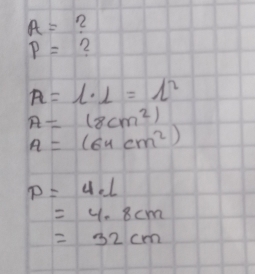 A = ?
P = ?
A = l · l = l²
A = (8cm²)
A = (64 cm²)
P = 4.l
= 4. 8cm
= 32 cm